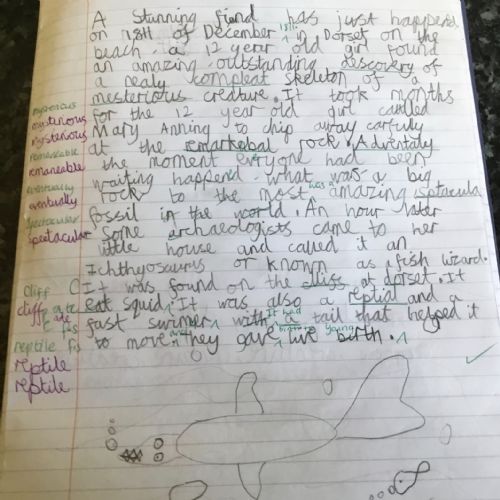 A stunning fiend has just happend
on 18th of December 1811. in Dorset on the
beach a 12 year old girl found
an amazing outstanding discovery of
a realy compleat skeleton of a
mesterious creature. It took months
for the 12 year old girl called
Mary Anning to chip away carfuly
at the remarkebal rock. Adventaly
the moment everyone had been
waiting happened what was a big
rock to the most was a amazing spetacular
fossil in the world. An hour later
some archaeologists came to her
little house and called it an
Ichthyosaurus or known as a fish wizard.
It was found on the cliss at dorset. It
eat squid. It was also a reptial and a
fast swimer with It had a tail that helped it
to move and they gave birth to live young birth.
mysterious
mysterious
mysterious
remarkeable
remarkeable
eventually
eventually
spectacular
spetacular
cliff
cliff
ate
are
reptile
reptile
reptile